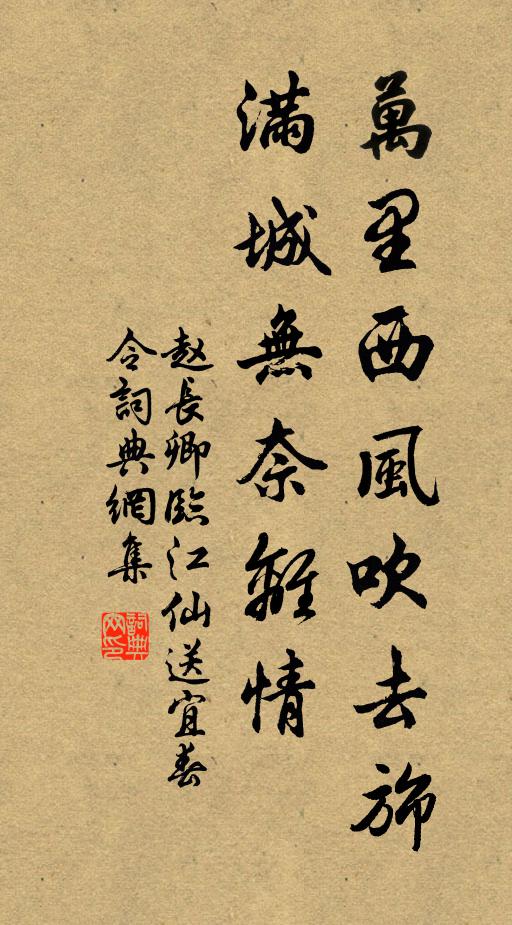 萬里西風吹去旆
滿城無奈離情
赵長卿臨江仙送宜春
令詞典網集
詞典网印